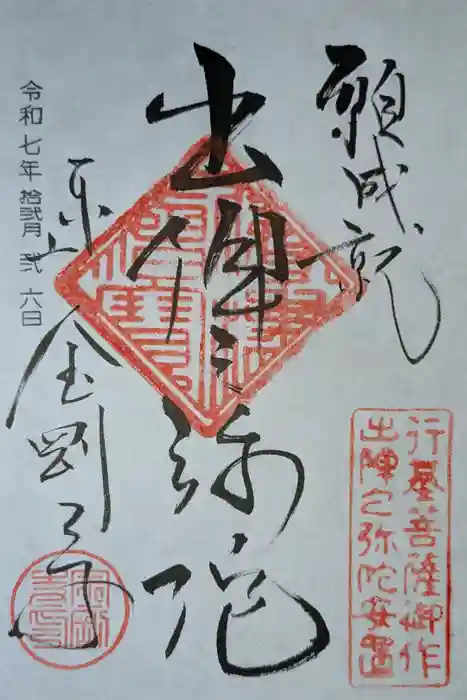 願成就
行基菩薩御作
出陣之弥陀安置
出陣之弥陀
令和七年拾弐月弐六日
東山
金剛寺